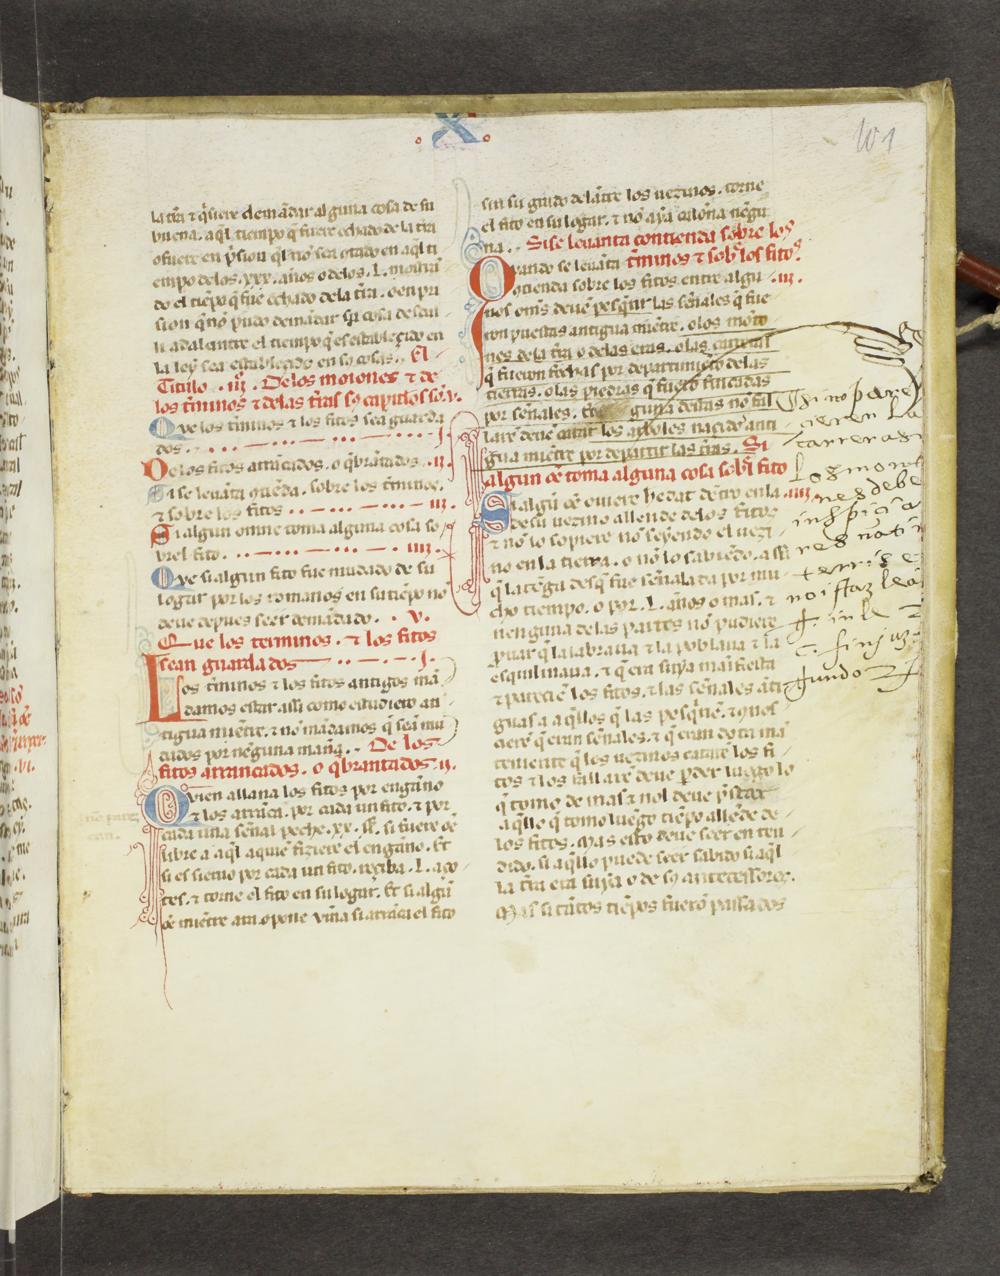 X
101
la tr̃a ⁊ q̃siere demãdar alguna cosa de su
buena. aq̃l tiempo q̃ fuere echado de la tr̃a
o fuere en p̃sion q̃l nõ sea otado en aq̃l ti
empo delos .xxx. años o delos .L. mostrã
do el tiẽpo q̃ fue echado dela tr̃a. o en pri
sion q̃ nõ pudo demãdar su cosa
adelantre el tiempo q̃ es establesçido en
la ley sea establesçido en sꝯ cosas. El
Titulo .iij. De los moiones ⁊ de
los t̃minos ⁊ delas tr̃as sꝯ capitlos sõ .v.
Que los t̃minos ⁊ los fitos sea guarda
dos. j.
De los fitos arrãcados. o q̃brãtados .ii.
Si se levãta cõtẽda. sobre los t̃minos.
⁊ sobre los fitos iii.
Si algun omne toma alguna cosa so
brel fito. iiii.
Que si algun fito fue mudado de su
logar por los romanos en su tiẽpo no
deve depues seer demãdado. v.
Que los terminos. ⁊ los fitos
sean guardados j.
Los t̃minos ⁊ los fitos antigos mã
damos estar assi como estudierõ an
tigua miẽtre. ⁊ nõ mãdamos q̃ seã mu
dados por nẽguna mañã. De los
fitos arrancados. o q̃brantados. ii.
Quien allana los fitos por engãno
⁊ los arrãca. por cada un fito. ⁊ por
cada una señal peche .xx. ss̃. si fuere õe
libre a aq̃l aquien fiziere el engãno. Et
si es siervo por cada un fito. reçiba .L. aço
tes. ⁊ torne el fito en su logar. Et si algũ
õe miẽtre ara o pone viña si arrãca el fito
sin su grado delãtre los vezinos. torne
el fito en su logar. ⁊ nõ aya calõna nẽgu
na. Si se levanta contienda sobre los
t̃minos ⁊ sob̃ los fitos. .iii.
Quando se levãta
cõtienda sobre los fitos entre algu
nos om̃s devẽ pesq̃rir las señales q̃ fue
ron puestas antigua miẽtre. o los mõto
nes dela tr̃a o delas eras. o las carreras
q̃ fueron fechas por departimiẽto delas
tierras. o las piedras q̃ fuerõ fincadas
por señales. guna destas nõ fal
larẽ devẽ catar los arboles nacidos anti
gua miẽtre por departir las tr̃as. Si
algun õe toma alguna cosa sob̃l fito
.iiii.
Si algũ õe oviere hedat dẽtro en la
de su vezino allende delos fitos
⁊ nõ lo sopiere nõ seyendo el vezi
no en la tierra. o nõ lo sabiẽdo. a ssi
q̃ la tẽga desq̃ fue señalada por mu
cho tiempo. o por .L. años o mas. ⁊
nenguna delas partes nõ pudiere
p̃var q̃ la labrava ⁊ la poblava ⁊ la
esquilmava. ⁊ q̃ era suya manifiesta
⁊ pareciẽ los fitos. ⁊ las señales ãti
guas a aq̃llos q̃ las pesq̃rirẽ.
q̃ eran señales. ⁊ q̃ eran
q̃ los vezinos catarẽ los fi
tos ⁊ los fallarẽ deve p̃der luego lo
q̃ tomo de mas ⁊ nol deve p̃star
aq̃llo q̃ tomo luego tiẽpo allẽde de
los fitos. Mas esto deve seer en ten
dido. si aq̃llo puede seer sabido si aq̃l
la tr̃a era suya o de sꝯ antecessores.
Mas si tãtos tiẽpos fuerõ passados
Si no pare
cieren la
carreras
los mont
nes debe
inspicia
res nati i
terris e
gundo